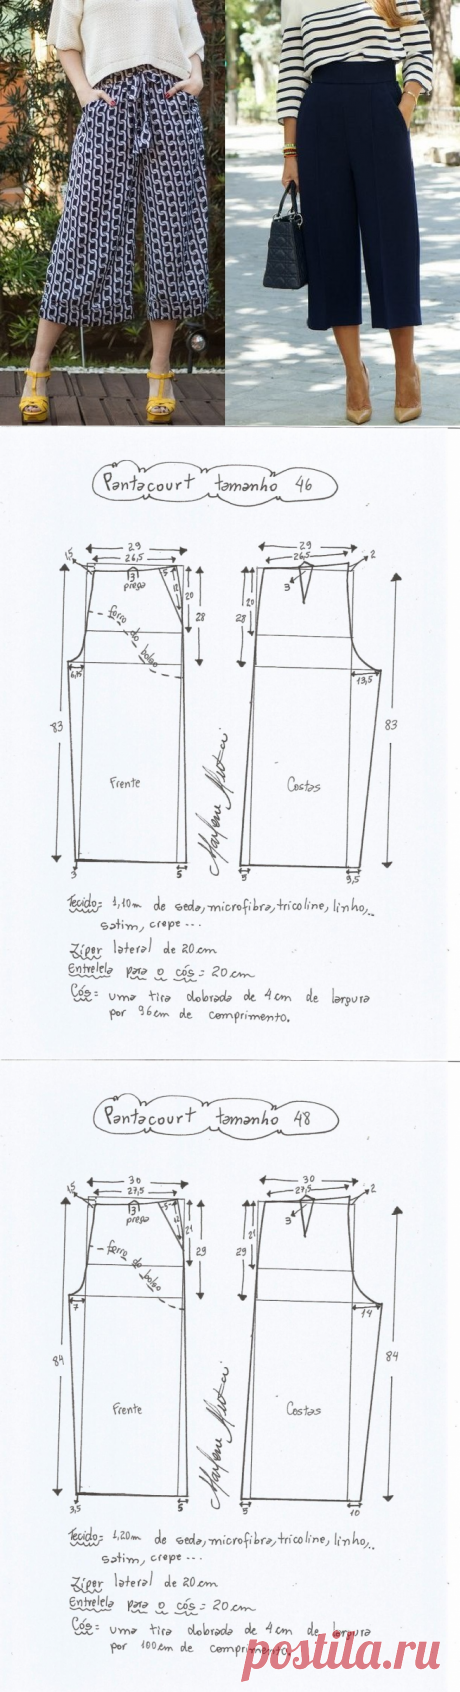 Pantacourt tamanho 46
29
26,5
1,5
3
prega
5
12
20
28
forro do bolso
6,5
83
Frente
3
5
29
26,5
2
3
20
28
13,5
83
Costas
5
9,5
Marlene Mukai
Tecido= 1,10m de seda, microfibra, tricoline, linho,..
satim, crepe ...
Zíper lateral de 20cm
Entretela para o cós = 20cm
Cós= uma tira dobrada de 4cm de largura
por 96cm de comprimento.
Pantacourt tamanho 48
30
27,5
1,5
3
prega
5
12
21
29
forro do bolso
7
84
Frente
3,5
5
30
27,5
2
3
21
29
14
84
Costas
5
10
Marlene Mukai
Tecido= 1,20m de seda, microfibra, tricoline, linho,..
satim, crepe ...
Zíper lateral de 20cm
Entretela para o cós = 20cm
Cós= uma tira dobrada de 4cm de largura
por 100cm de comprimento.
postila.ru